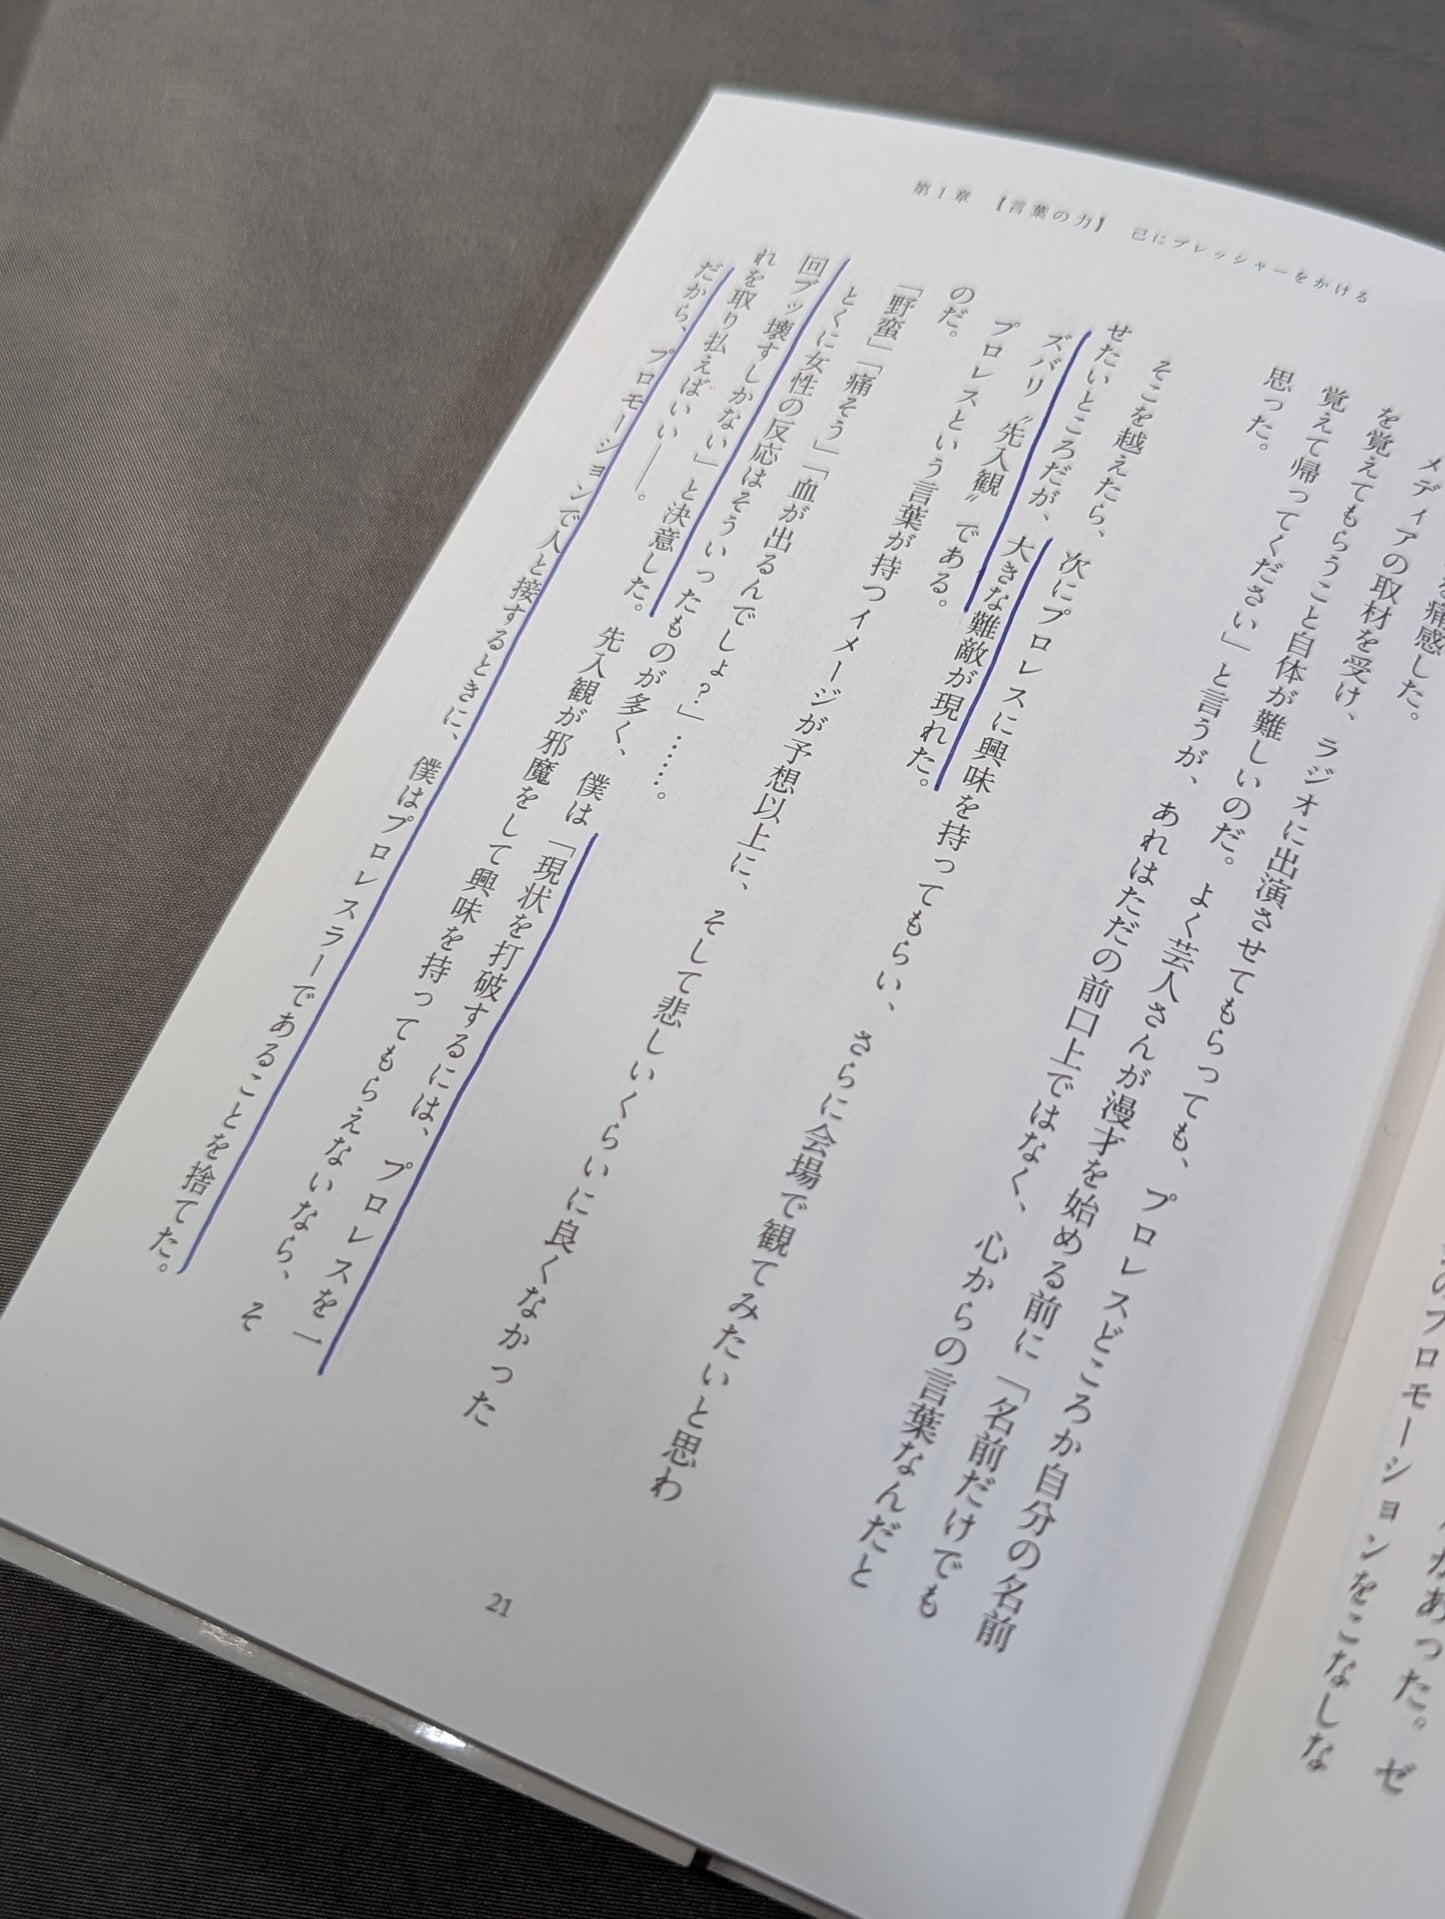 第1章　【言葉の力】　己にプレッシャーをかける
があった。ゼ
のプロモーションをこなしな
痛感した。
メディアの取材を受け、ラジオに出演させてもらっても、プロレスどころか自分の名前
を覚えてもらうこと自体が難しいのだ。よく芸人さんが漫才を始める前に「名前だけでも
覚えて帰ってください」と言うが、あれはただの前口上ではなく、心からの言葉なんだと
思った。
そこを越えたら、次にプロレスに興味を持ってもらい、さらに会場で観てみたいと思わ
せたいところだが、大きな難敵が現れた。
ズバリ〝先入観〟である。
プロレスという言葉が持つイメージが予想以上に、そして悲しいくらいに良くなかった
のだ。
「野蛮」「痛そう」「血が出るんでしょ？」……。
とくに女性の反応はそういったものが多く、僕は「現状を打破するには、プロレスを一
回ブッ壊すしかない」と決意した。先入観が邪魔をして興味を持ってもらえないなら、そ
れを取り払えばいい――。
だから、プロモーションで人と接するときに、僕はプロレスラーであることを捨てた。
21